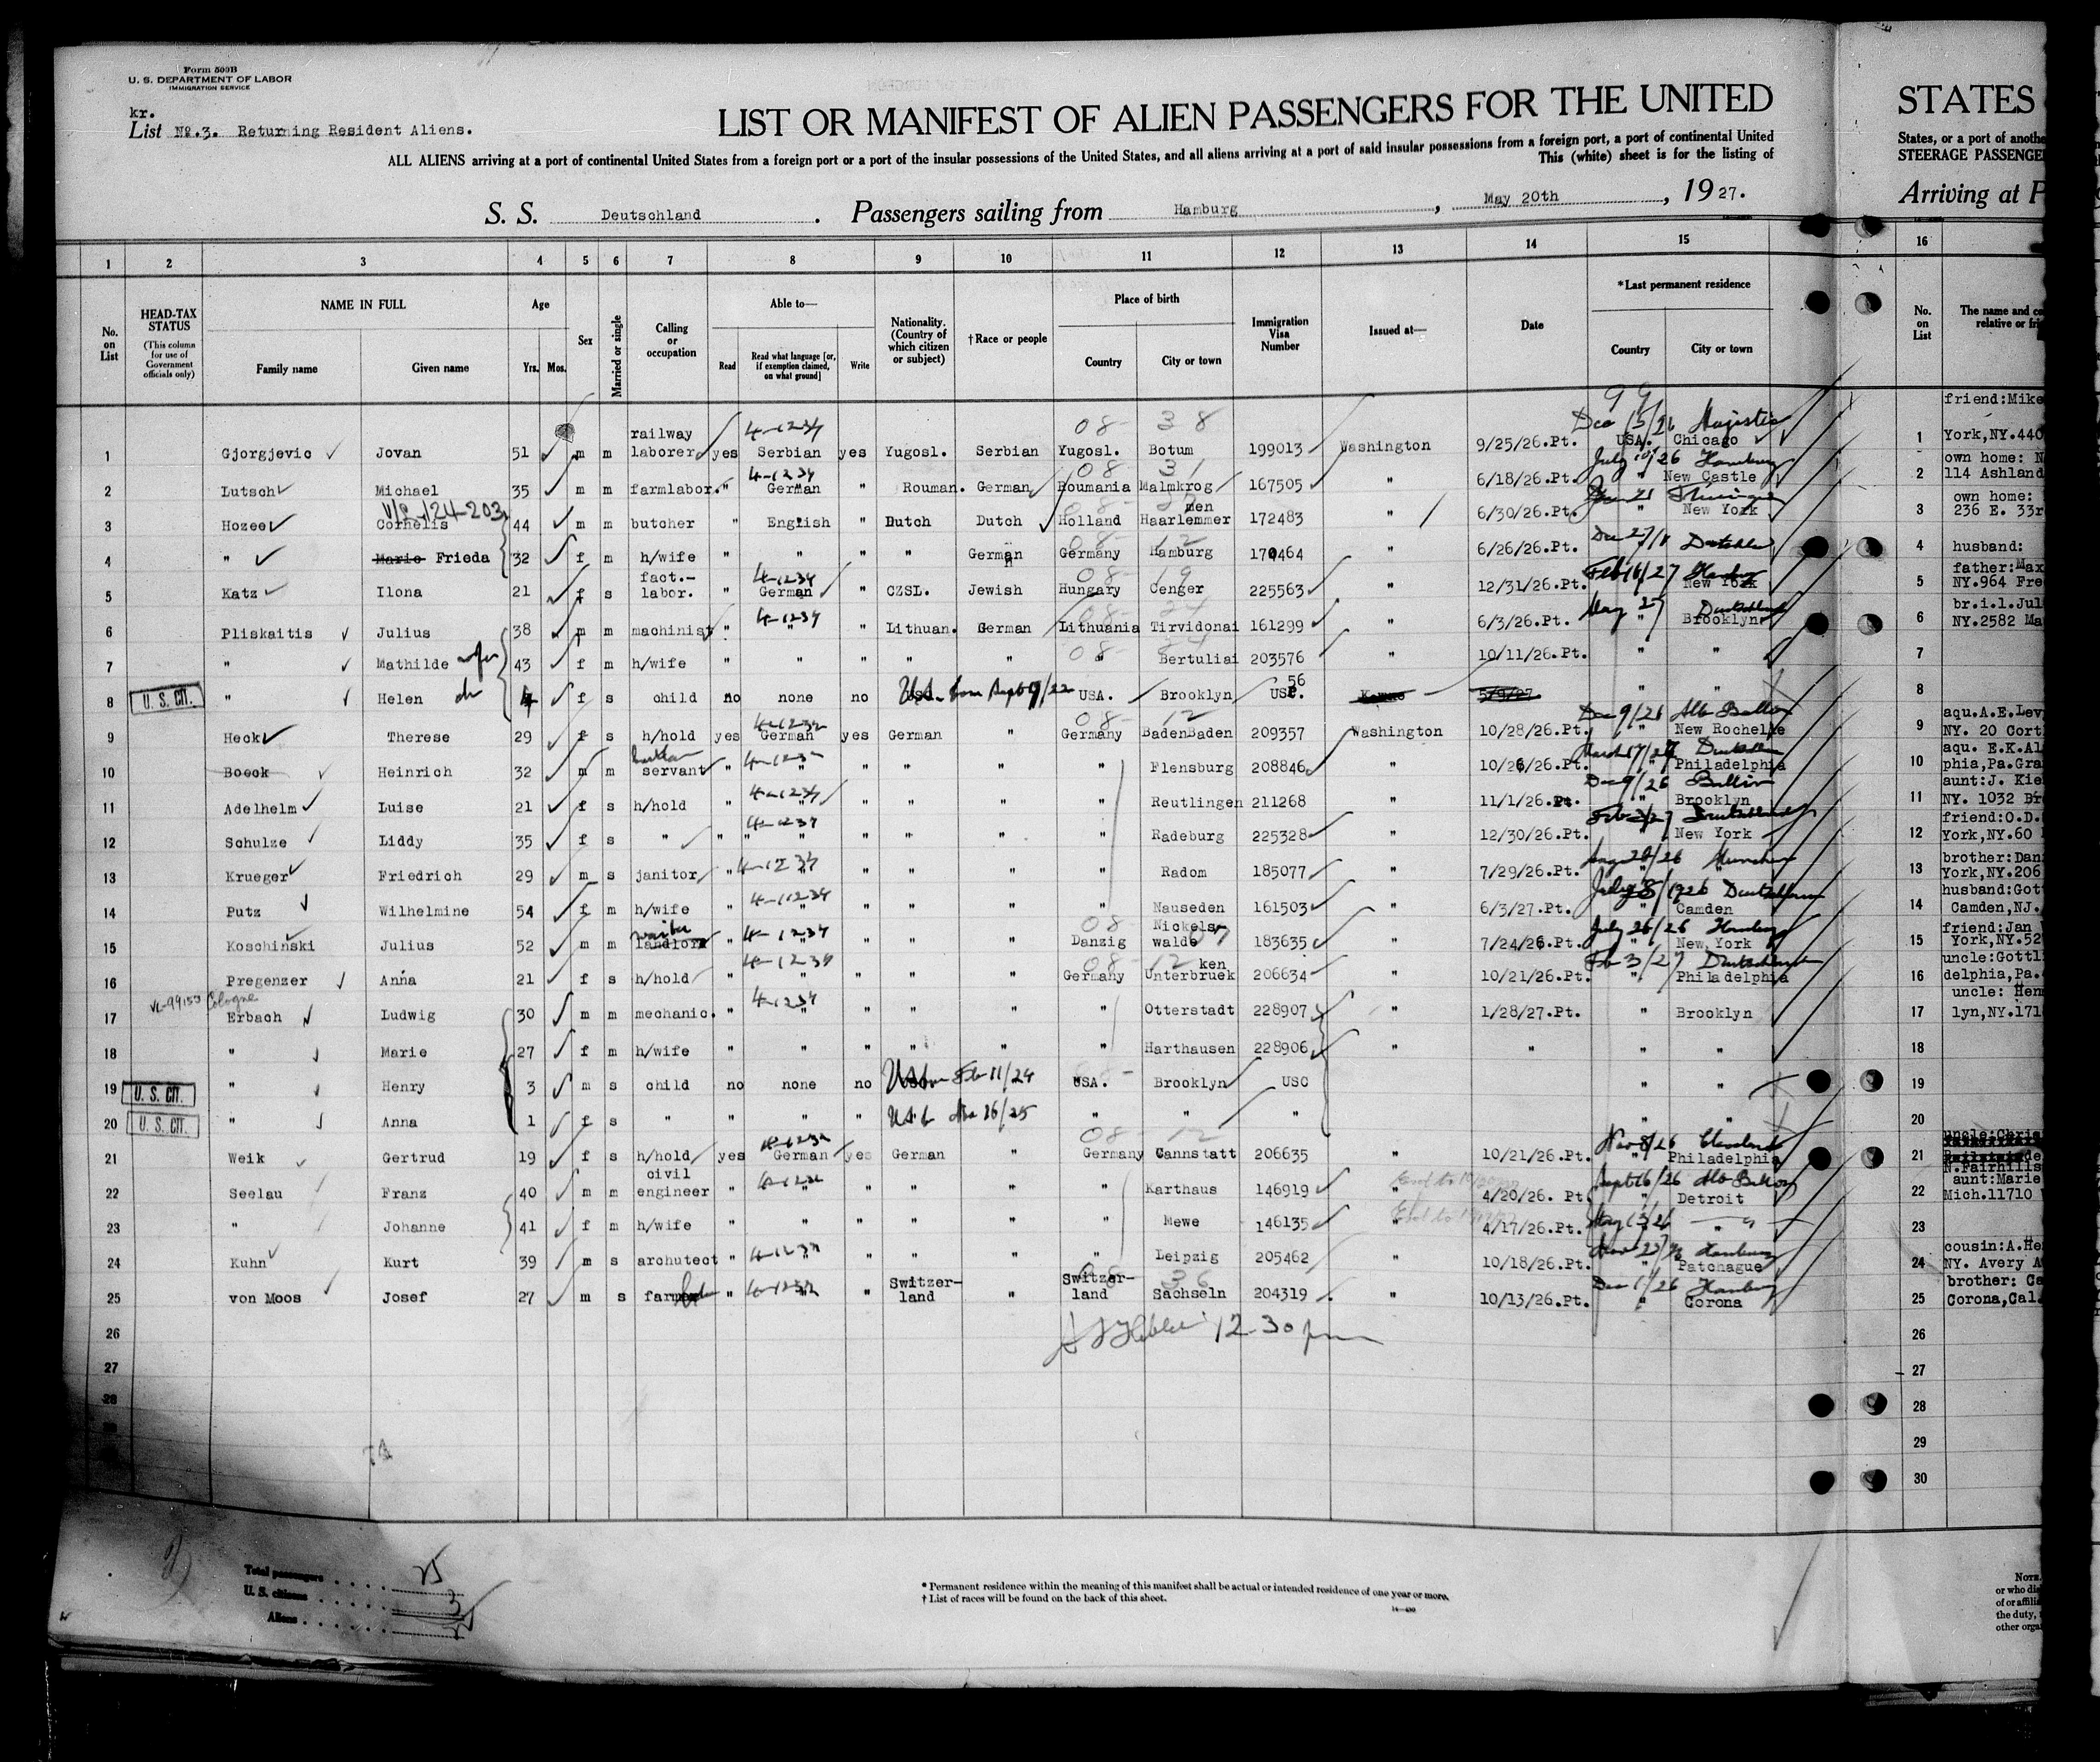 Form 500B
U. S. DEPARTMENT OF LABOR
IMMIGRATION SERVICE
kr.
List No.3. Returning Resident Aliens.
LIST OR MANIFEST OF ALIEN PASSENGERS FOR THE UNITED
STATES
ALL ALIENS arriving at a port of continental United States from a foreign port or a port of the insular possessions of the United States, and all aliens arriving at a port of said insular possessions from a foreign port, a port of continental United
States, or a port of anothe
This (white) sheet is for the listing of
STEERAGE PASSENGE
S. S. Deutschland . Passengers sailing from Hamburg , May 20th , 1927.
Arriving at P
1 2 3 4 5 6 7 8 9 10 11 12 13 14 15 16
No. on List
HEAD-TAX STATUS (This column for use of Government officials only)
NAME IN FULL Family name Given name
Age Yrs. Mos.
Sex
Married or single
Calling or occupation
Able to— Read Read what language [or, if exemption claimed, on what ground] Write
Nationality. (Country of which citizen or subject)
†Race or people
Place of birth Country City or town
Immigration Visa Number
Issued at—
Date
*Last permanent residence Country City or town
No. on List
The name and co
relative or fri
99
1 Gjorgjevic Jovan 51 m m railway laborer yes 4-1234 Serbian yes Yugosl. Serbian 08- 38 Yugosl. Botum 199013 Washington 9/25/26.Pt. Dec 15/26 Majestic USA. Chicago 1 friend:Mike York,NY.440
2 Lutsch Michael 35 m m farmlabor. " 4-1234 German " Rouman. German 08 31 Roumania Malmkrog 167505 " 6/18/26.Pt. July 10/26 Hamburg " New Castle 2 own home: N 114 Ashland
3 Hozee Cornelis 44 m m butcher " English " Dutch Dutch Holland Haarlemmer men 172483 " 6/30/26.Pt. " New York 3 own home: 236 E. 33r
4 " Marie Frieda 32 f m h/wife " " " " German 08- 12 Germany Hamburg 170464 " 6/26/26.Pt. " 4 husband:
5 Katz Ilona 21 f s fact.- labor. " 4-1234 German " CZSL. Jewish 08 19 Hungary Cenger 225563 " 12/31/26.Pt. Feb 16/27 New York 5 father:Max NY.964 Fre
6 Pliskaitis Julius 38 m m machinist " 4-1234 " " Lithuan. German 08 24 Lithuania Tirvidonai 161299 " 6/3/26.Pt. May 27 Deutschland " Brooklyn 6 br.i.l.Jul NY.2582 Ma
7 " Mathilde wife 43 f m h/wife " " " " " 08- " Bertuliai 203576 " 10/11/26.Pt. " " 7
8 U. S. CIT. " Helen 4 f s child no none no born Sept 19/22 USA. Brooklyn " " 8
9 Heck Therese 29 f s h/hold yes German yes German " 08- 12 Germany BadenBaden 209357 Washington 10/28/26.Pt. Dec 9/26 " New Rochelle 9 aqu.A.E.Lev NY. 20 Cort
10 Boeck Heinrich 32 m m servant " " " " " " Flensburg 208846 " 10/26/26.Pt. March 17/27 " Philadelphia 10 aqu. E.K.Al phia,Pa.Gra
11 Adelhelm Luise 21 f s h/hold " 4-1234 " " " " " Reutlingen 211268 " 11/1/26.Pt. Dec 9/26 " Brooklyn 11 aunt:J. Kie NY. 1032 Br
12 Schulze Liddy 35 f s " " 4-1234 " " " " " Radeburg 225328 " 12/30/26.Pt. " New York 12 friend:O.D. York,NY.60
13 Krueger Friedrich 29 m s janitor " 4-1234 " " " " " Radom 185077 " 7/29/26.Pt. Munchen " " 13 brother:Dan York,NY.206
14 Putz Wilhelmine 54 f m h/wife " 4-1234 " " " " " Nauseden 161503 " 6/3/27.Pt. July 8/1926 Deutschland " Camden 14 husband:Got Camden,NJ.
15 Koschinski Julius 52 m m waiter landlord " 4-1234 " " " " 08- 07 Danzig Nickels- walde 183635 " 7/24/26.Pt. July 26/26 Hamburg " New York 15 friend:Jan York,NY.52
16 Pregenzer Anna 21 f s h/hold " 4-1234 " " " " 08- 12 Germany Unterbruek ken 206634 " 10/21/26.Pt. Feb 3/27 Deutschland " Philadelphia 16 uncle:Gottl delphia,Pa.
Cologne
17 Erbach Ludwig 30 m m mechanic. " 4-1234 " " " " " Otterstadt 228907 " 1/28/27.Pt. " Brooklyn 17 uncle: Hen lyn,NY.171
18 " Marie 27 f m h/wife " " " " " " Harthausen 228906 " " " " 18
19 U. S. CIT. " Henry 3 m s child no none no born Feb 11/24 USA. Brooklyn USC " " 19
20 U. S. CIT. " Anna 1 f s " " " " " " " " " 20
21 Weik Gertrud 19 f s h/hold yes German yes German " 08- 12 Germany Cannstatt 206635 " 10/21/26.Pt. Nov 8/26 Cleveland " Philadelphia 21 uncle:Chris N.Fairhills
22 Seelau Franz 40 m m civil engineer " " " " " " Karthaus 146919 " 4/20/26. Pt. Sept 16/26 " Detroit 22 aunt:Marie Mich.11710
23 " Johanne 41 f m h/wife " " " " " " Mewe 146135 " 4/17/26.Pt. May 13/26 " " 23
24 Kuhn Kurt 39 m s archutect " " " " " " Leipzig 205462 " 10/18/26.Pt. Hamburg " Patchague 24 cousin:A.He NY. Avery A
25 von Moos Josef 27 m s " " " Switzer- land " Switzer- land 36 Sachseln 204319 " 10/13/26.Pt. Dec 1/26 Hamburg " Corona 25 brother: Ca Corona,Cal.
26 12-30 pm 26
27 27
28 28
29 29
30 30
Total passengers 25
U. S. citizens 3
Aliens
* Permanent residence within the meaning of this manifest shall be actual or intended residence of one year or more.
† List of races will be found on the back of this sheet.
NOTE.
or who di
of or affili
the duty,
other orga